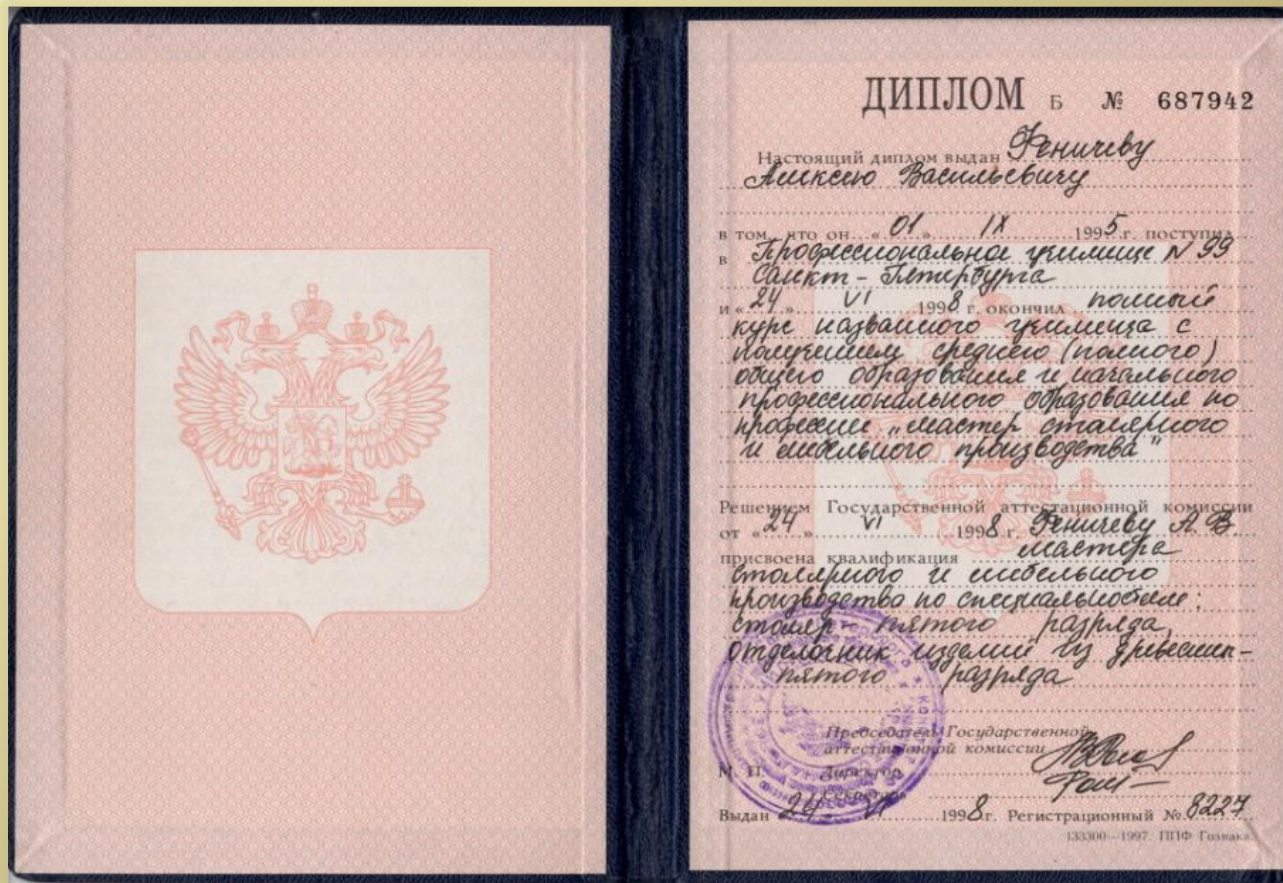 ДИПЛОМ Б № 687942
Настоящий диплом выдан Феничеву
Алексею Васильевичу
в том, что он „01„ IX 1995 г. поступил
в Профессиональное училище N 99
Санкт-Петербурга
и «24» VI 1998 г. окончил полный
курс названного училища с
получением среднего (полного)
общего образования и начального
профессионального образования по
профессии „мастер столярного
и мебельного производства"
Решением Государственной аттестационной комиссии
от «24» VI 1998 г. Феничеву А.В.
присвоена квалификация мастера
столярного и мебельного
производства по специальностям:
столяр - пятого разряда,
отделочник изделий из древесины-
пятого разряда
Председатель Государственной
аттестационной комиссии
М. П. Директор
Секретарь
Выдан 24 VI 1998 г. Регистрационный № 8227
133300—1997. ППФ Гознака.